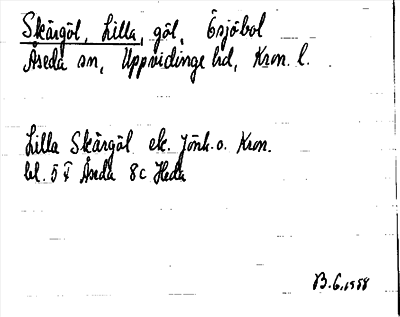 Skärgöl, Lilla, göl, Ösjöbol
Åseda sn, Uppvidinge hd, Kron. l.
Lilla Skärgöl ek. Jönk. o. Kron.
bl. 5 F Åseda 8c Heda
B.G. 1958